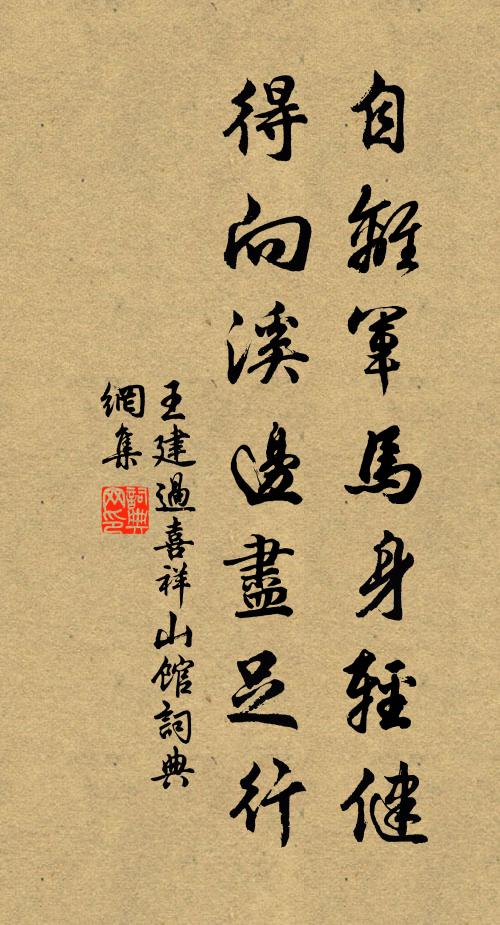 自離軍馬身輕健
得向溪邊盡足行
王建過喜祥山館詞典
網集
詞典
网印